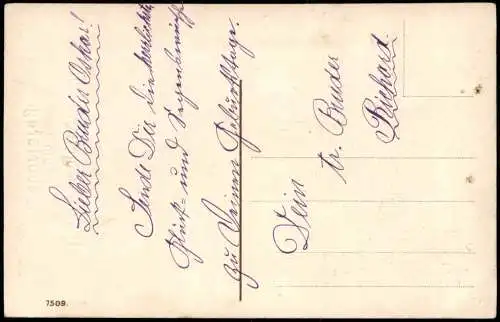 Lieber Bruder Oskar!
Sende Dir die herzlichsten
Glück- und Segenswünsche
zu Deinem Geburtstage.
Dein
tr. Bruder
Richard.
7509.